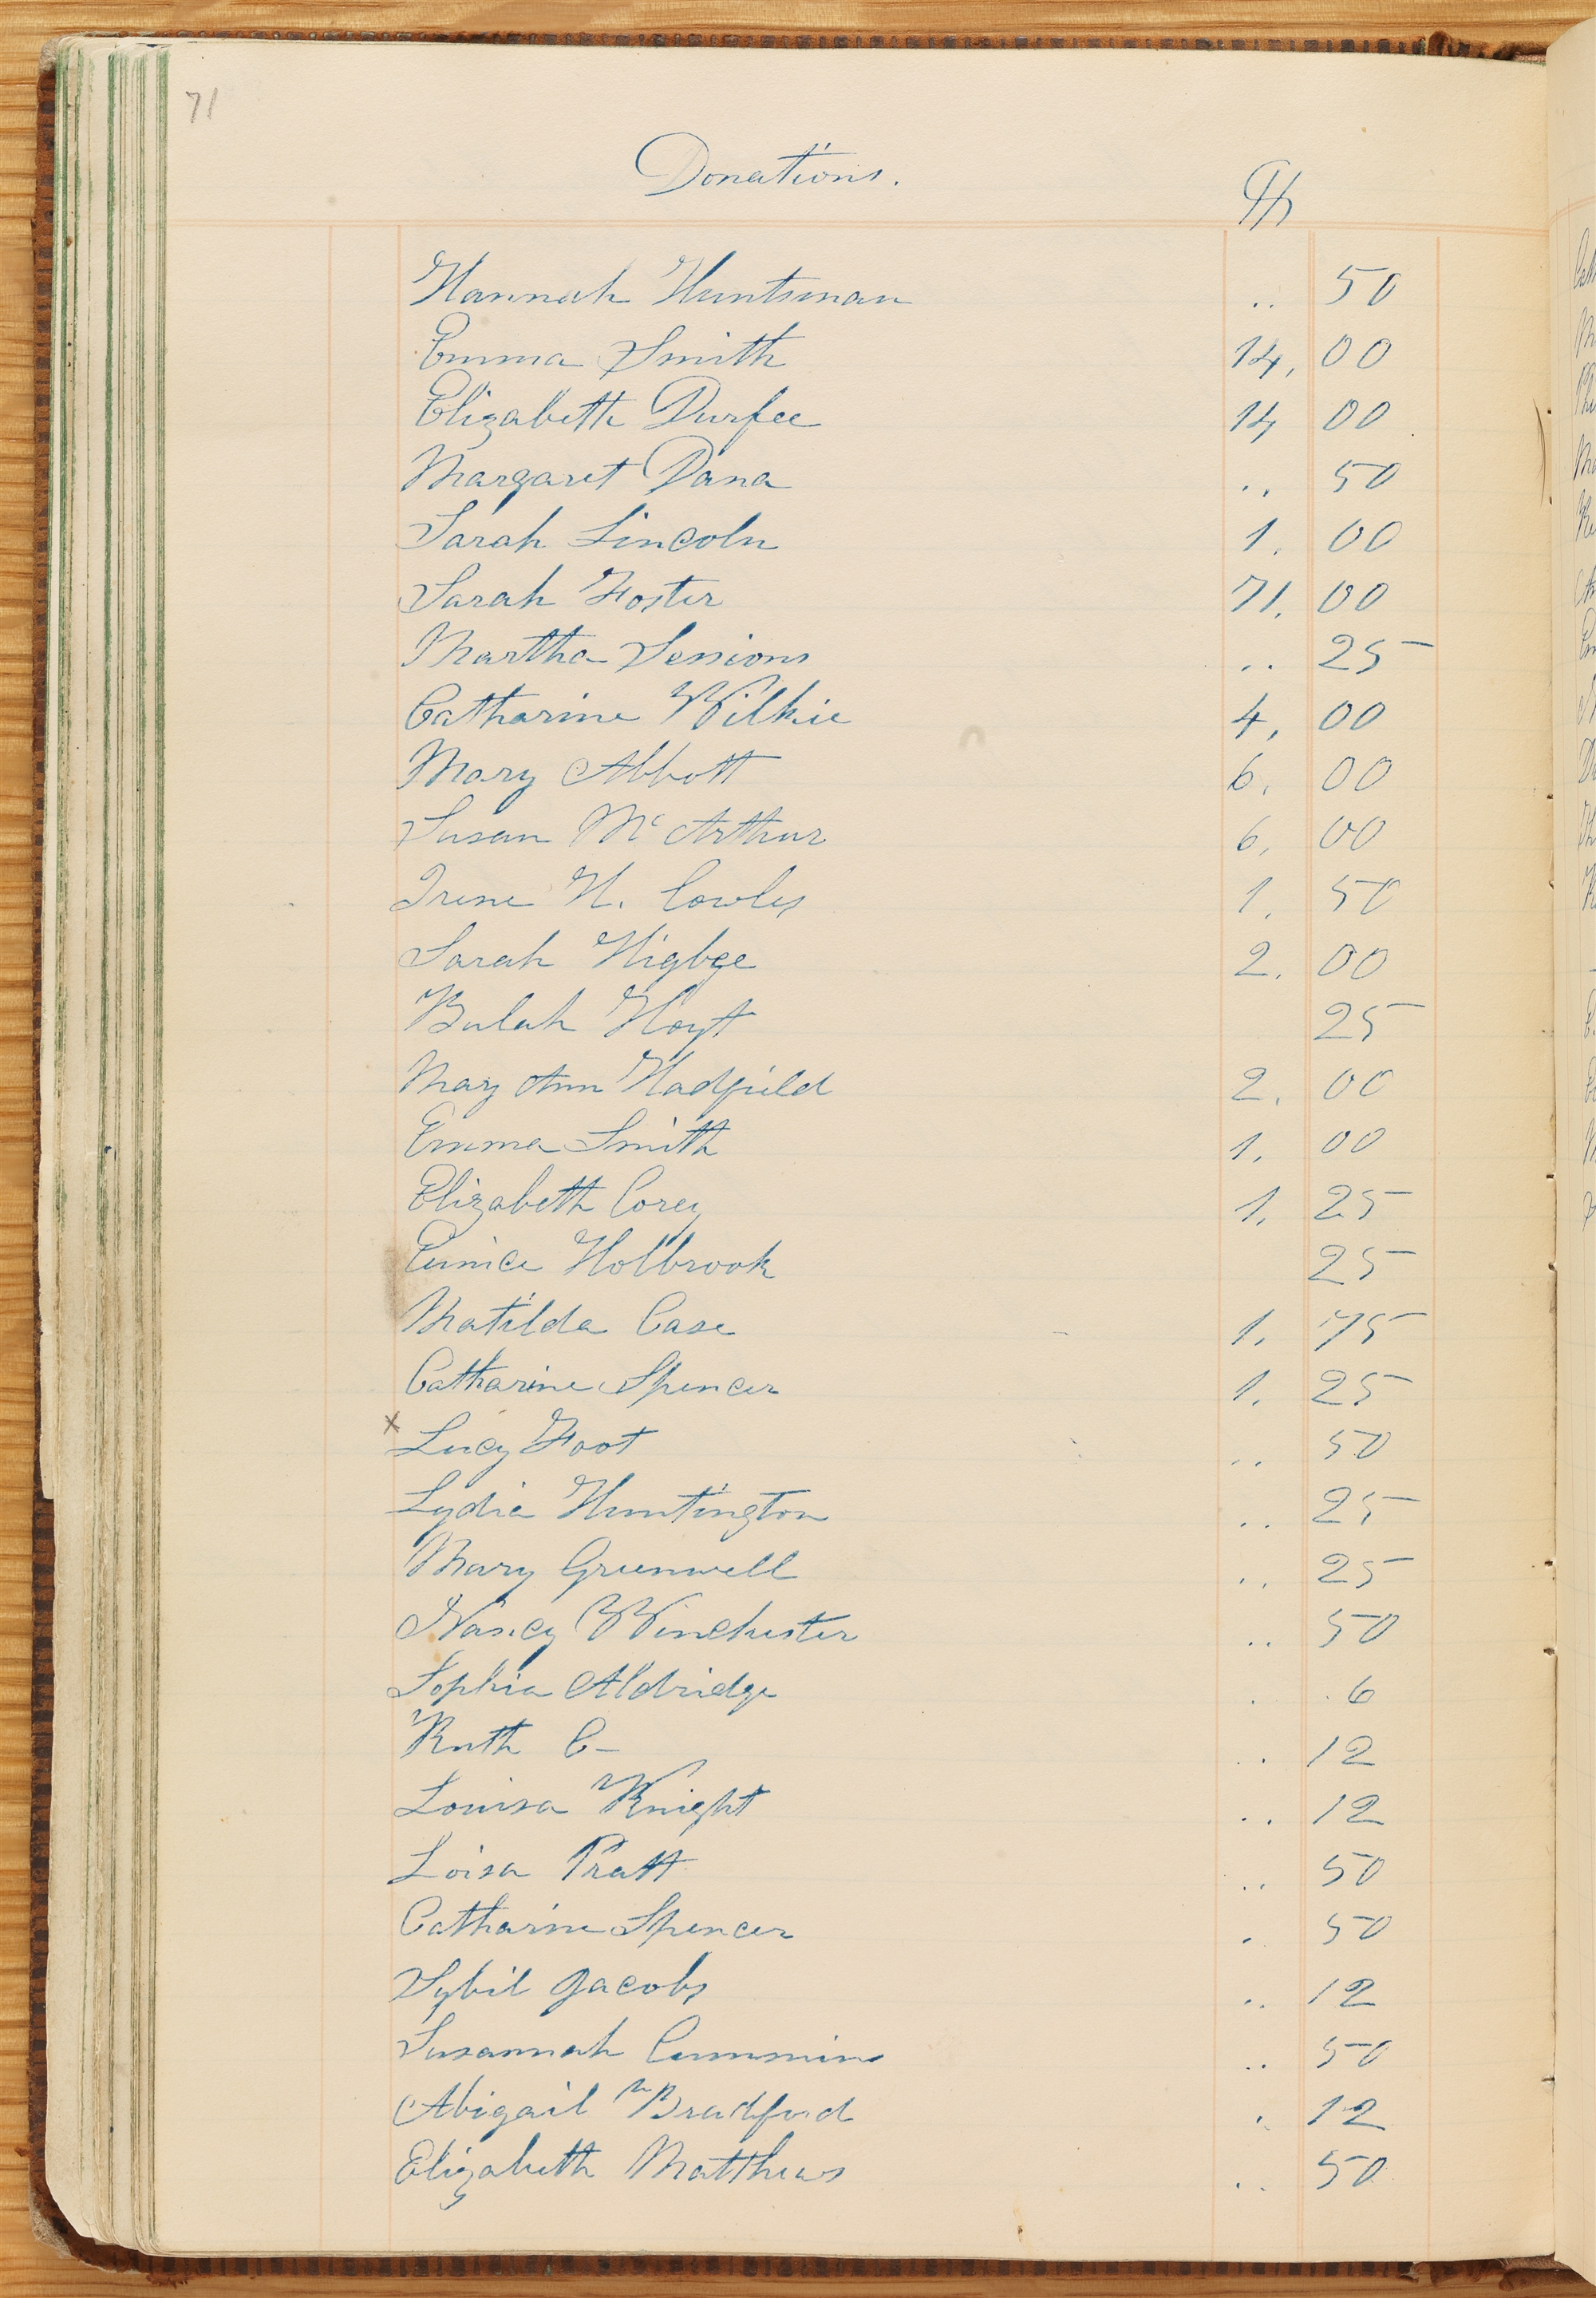 71
Donations.
Hannah Huntsman .. 50
Emma Smith 14, 00
Elizabeth Durfee 14 00
Margaret Dana .. 50
Sarah Lincoln 1. 00
Sarah Foster 71. 00
Martha Sessions .. 25
Catharine Wilkie 4, 00
Mary Abbott 6. 00
Susan Mc Arthur 6, 00
Irene H. Cowles 1. 50
Sarah Higbee 2. 00
Bulah Hoyt 25
Mary Ann Hadfield 2. 00
Emma Smith 1. 00
Elizabeth Corey 1. 25
Eunice Holbrook 25
Matilda Case 1. 75
Catharine Spencer 1. 25
x Lucy Foot .. 50
Lydia Huntington .. 25
Mary Greenwell .. 25
Nancy Winchester .. 50
Sophia Aldridge . . 6
Ruth C— .. 12
Louisa Knight .. 12
Loisa Pratt .. 50
Catharine Spencer . 50
Sybil Jacobs .. 12
Susannah Cummins .. 50
Abigail Bradford . 12
Elizabeth Matthews .. 50